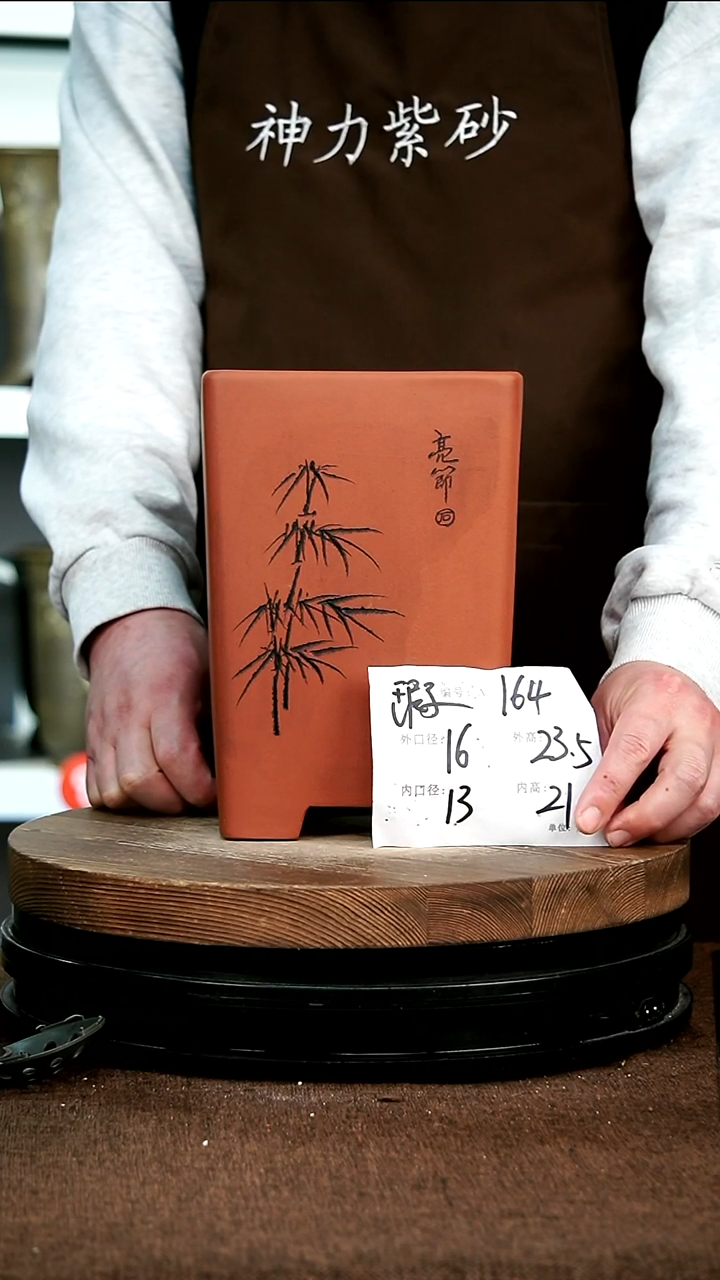 神力紫砂
亮
節
编号: 164
外口径: 16 外高: 23.5
内口径: 13 内高: 21
单位: